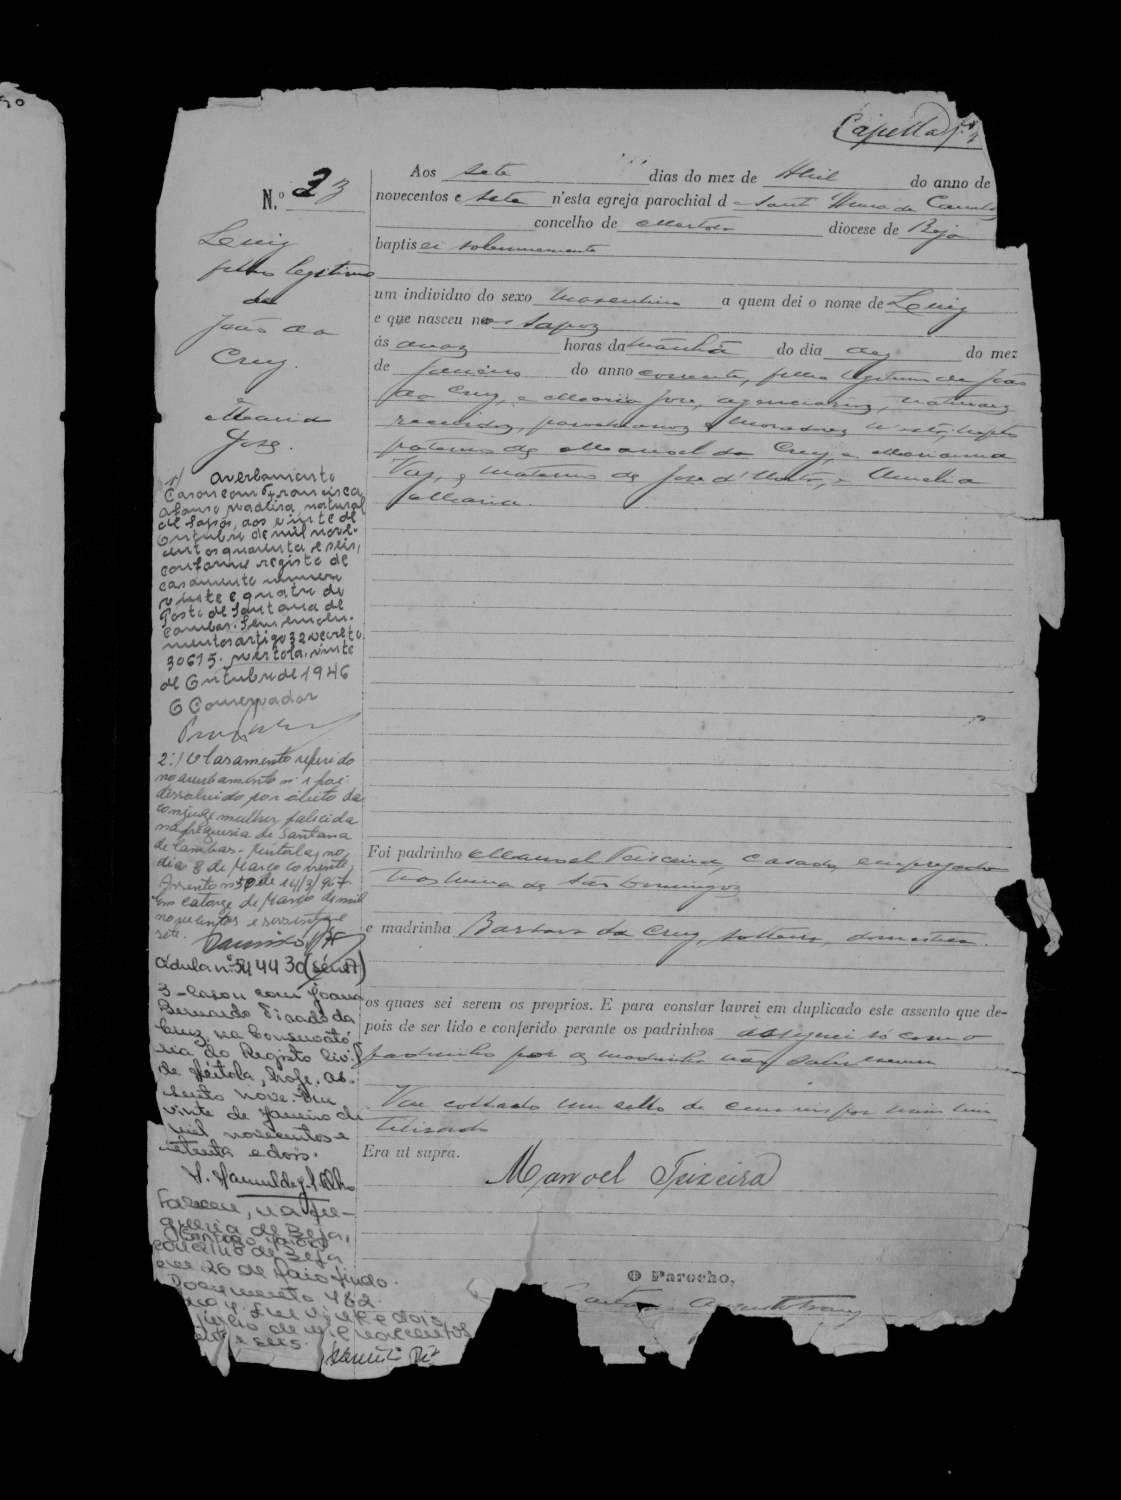 Capella
N.º 23
Aos sete dias do mez de Abril do anno de
novecentos e sete n'esta egreja parochial de Sant'Anna de Cambas
concelho de Mertola diocese de Beja
baptisei solemnemente
um individuo do sexo masculino a quem dei o nome de Luiz
e que nasceu nos Sapos
ás duas horas da manhã do dia dez do mez
de Janeiro do anno corrente, filho legitimo de João
da Cruz, e Maria Jose, naturaes
recebidos, parochianos e moradores n'esta, neto
paterno de Manoel da Cruz, e Marianna
Vaz, e materno de Jose d'Horta, e Amelia
Maria.
Foi padrinho Manoel Teixeira, casado, empregado
na mina de São Domingos
e madrinha Barbara da Cruz, solteira, domestica.
os quaes sei serem os proprios. E para constar lavrei em duplicado este assento que de-
pois de ser lido e conferido perante os padrinhos assignei só com o
padrinho por a madrinha não saber escrever
Vae collado um sello de cem reis por mim inu
tilisado
Era ut supra.
Manoel Teixeira
O Parocho,
Luiz
filho legitimo
de
João da
Cruz.
e
Maria
Jose.
1/ Averbamento
Casou com Francisca
Afonso Madeira, natural
de Sapos, aos vinte de
Outubro de mil nove-
centos quarenta e seis,
conforme registo de
casamento numero
vinte e quatro do
Posto de Santana de
Cambas. Sem emolu-
mentos artigo 32 decreto
30615. Mertola, vinte
de Outubro de 1946
O Conservador
2.º/ O casamento referido
no averbamento nº 1 foi
dissolvido por óbito da
conjuge mulher falecida
na freguesia de Santana
de Cambas - Mértola, no
dia 8 de Março corrente,
Assento nº 50 de 14/3/967.
Em catorze de Março de mil
novecentos e sessenta e
sete.
Cédula nº 344430
3 - Casou com Joana
Bernardo Tirado da
Cruz, na Conservató-
ria do Registo Civil
de Mértola, hoje. As-
sento nove. Em
vinte de Janeiro de
mil novecentos e
setenta e dois.
Faleceu, na fre-
guesia de Beja,
concelho de Beja
em 26 de Maio findo.
Documento 482